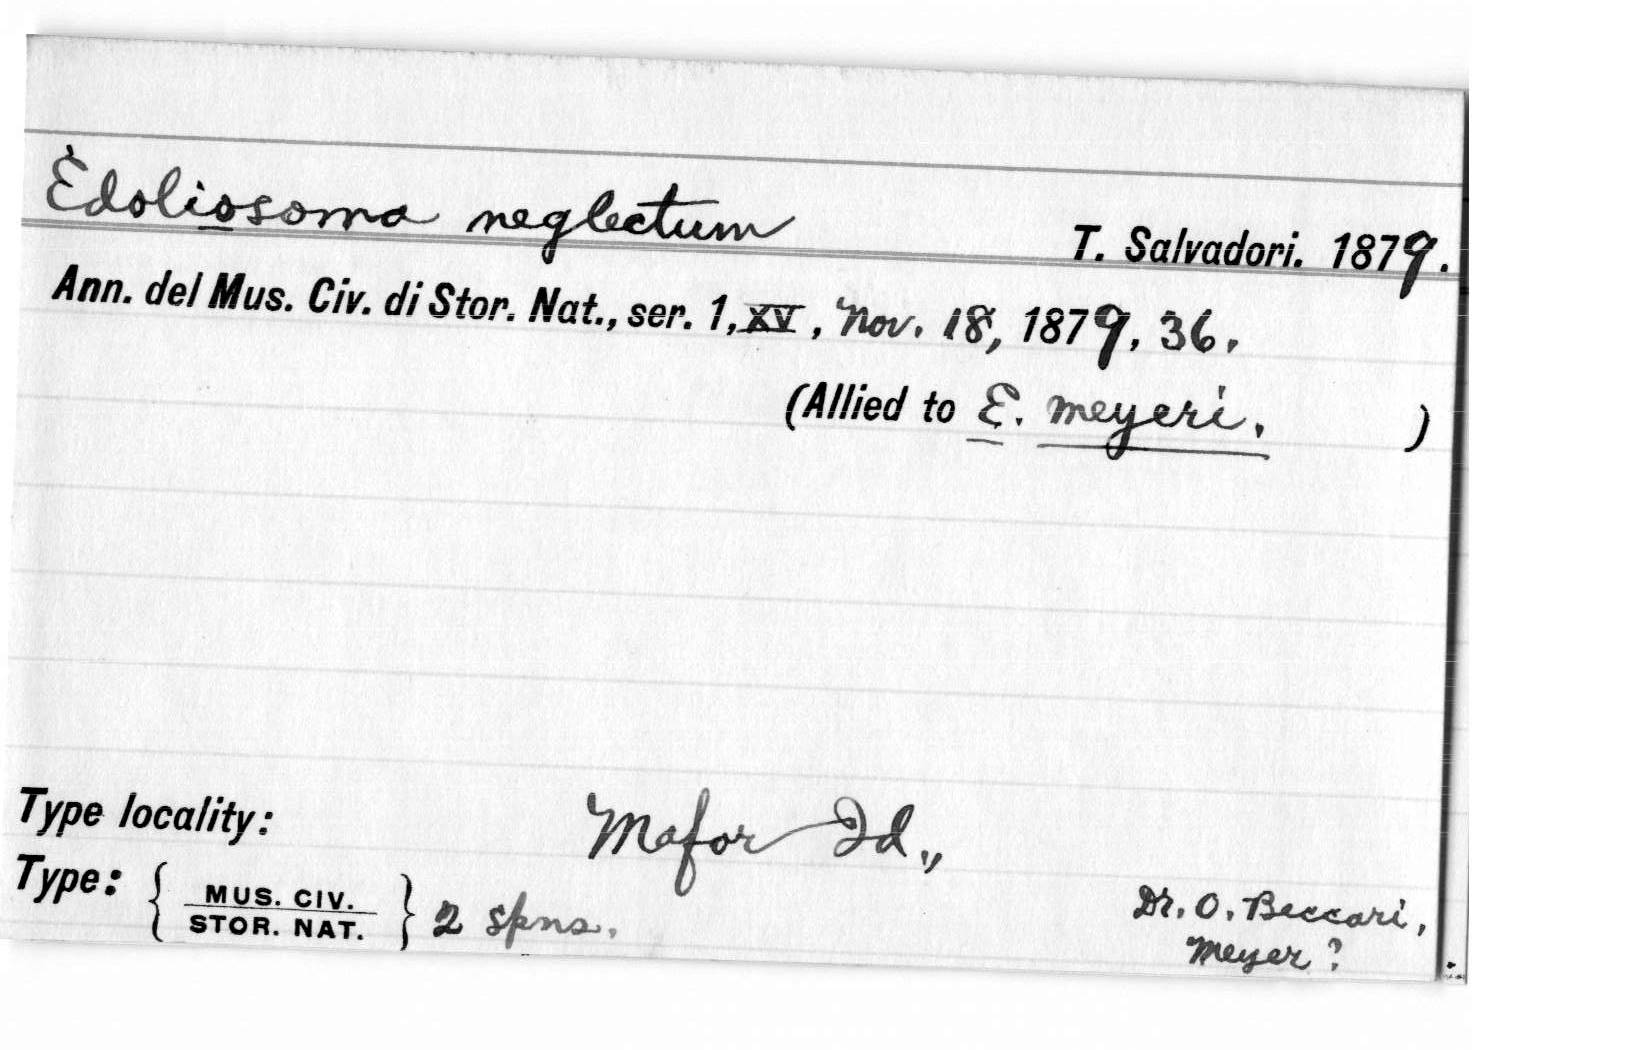 Edoliosoma neglectum
T. Salvadori. 1879.
Ann. del Mus. Civ. di Stor. Nat., ser. 1, XV, Nov. 18, 1879, 36.
(Allied to E. meyeri. )
Type locality: Mafor Id.,
Type: { MUS. CIV. STOR. NAT. } 2 spns.
Dr. O. Beccari,
Meyer?